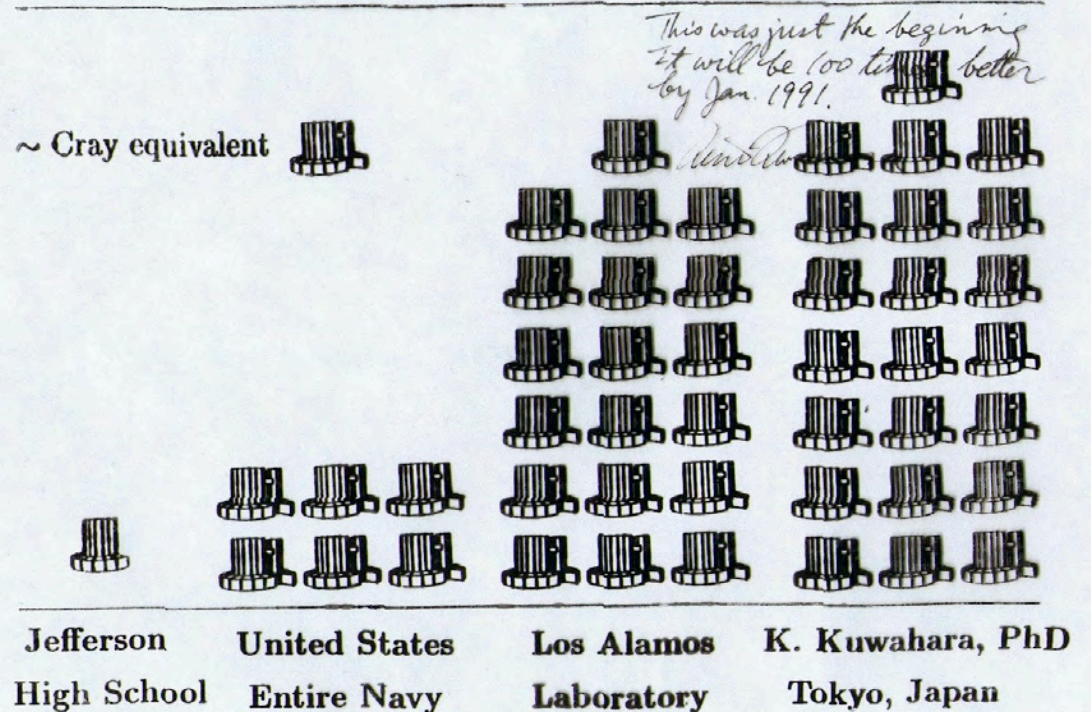 This was just the beginning
It will be 100 times better
by Jan. 1991.
~ Cray equivalent
Jefferson
High School
United States
Entire Navy
Los Alamos
Laboratory
K. Kuwahara, PhD
Tokyo, Japan